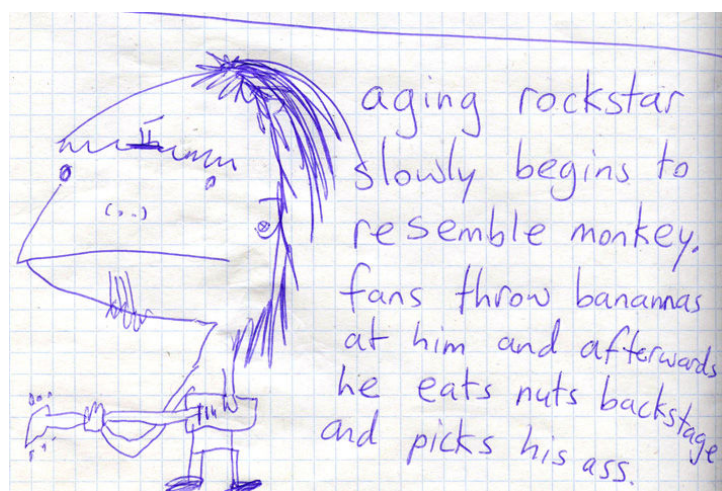 aging rockstar
slowly begins to
resemble monkey.
fans throw banannas
at him and afterwards
he eats nuts backstage
and picks his ass.